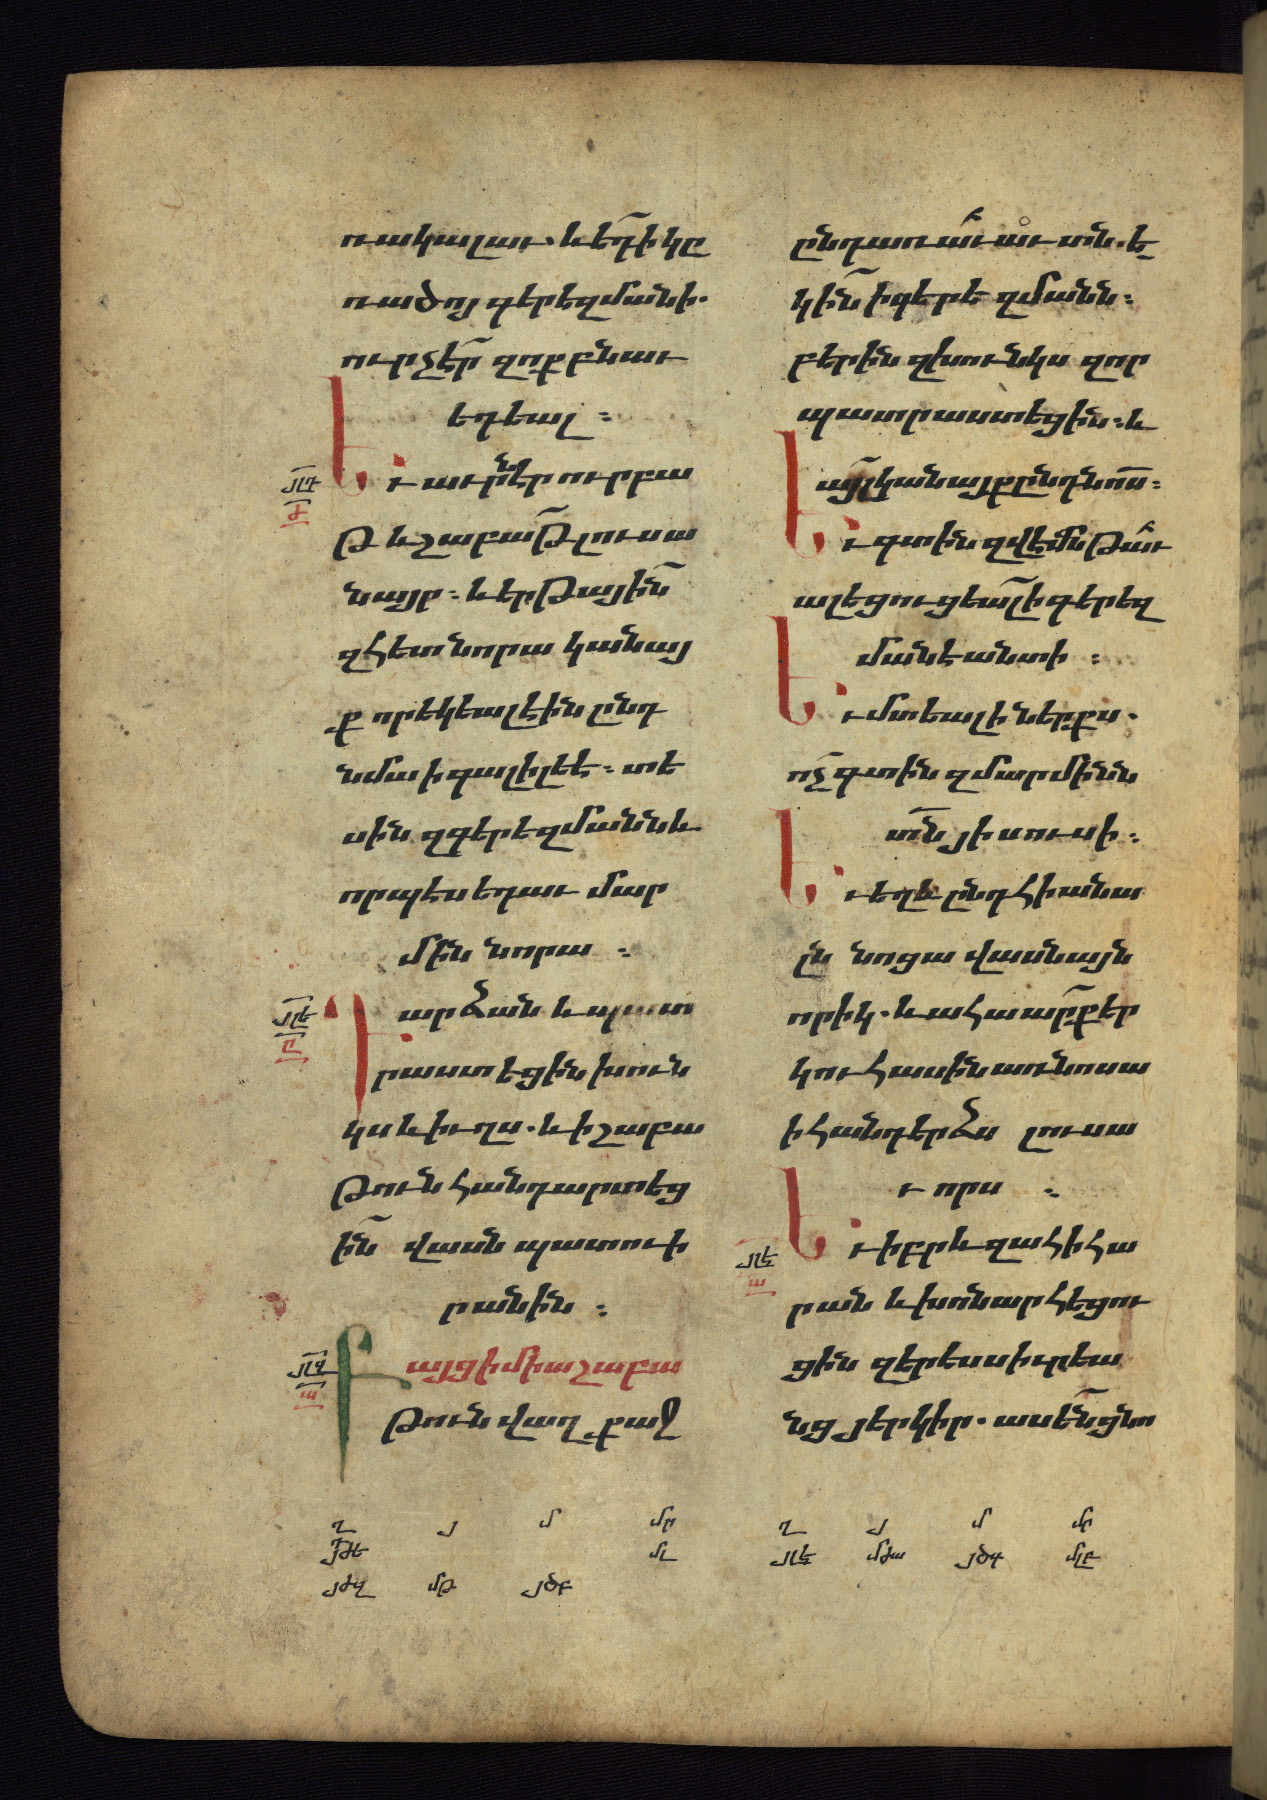 ռակալաւ. և եդ ի կը
ռածոյ գերեզմանի.
ուր չէր զոք բնաւ
եդեալ ։
յլդ
ժ
Եւ աւրն էր ուրբա
թ և շաբաթ լուսա
նայր ։ և երթային
զհետ նորա կանայ
ք որ եկեալ էին ընդ
նմա ի գալիլեէ ։ տե
սին զգերեզմանն և
որպէս եդաւ մար
մին նորա ։
յլե
ը
Դարձան և պատ
րաստեցին խուն
կս և իւղս. և ի շաբա
թուն հանդարտեց
ին վասն պատուի
րանին ։
յլզ
ա
Բայց ի միաշաբա
թուն վաղ քաջ
ընդառաւաւտն. ե
կին ի գերեզմանն ։
բերին զխունկս զոր
պատրաստեցին ։ և
այլ կանայք ընդ նոսա ։
Եւ գտին զվէմն թաւ
ալեցուցեալ ի գերեզ
մանէ անտի ։
Եւ մտեալ ի ներքս.
ոչ գտին զմարմինն
տն յիսուսի ։
Եւ եղև ընդ հիանա
լն նոցա վասն այն
որիկ. և ահա արք եր
կու հասին առ նոսա
ի հանդերձս լուսա
ւորս ։
յլէ
ա
Եւ իբրև զահի հա
րան և խոնարհեցու
ցին զերեսս իւրեա
նց յերկիր. ասեն ցնո
ղ յ մ մր ղ յ մ մր
յժե մլ յլէ մժա յծդ մլբ
յժզ մթ յծբ